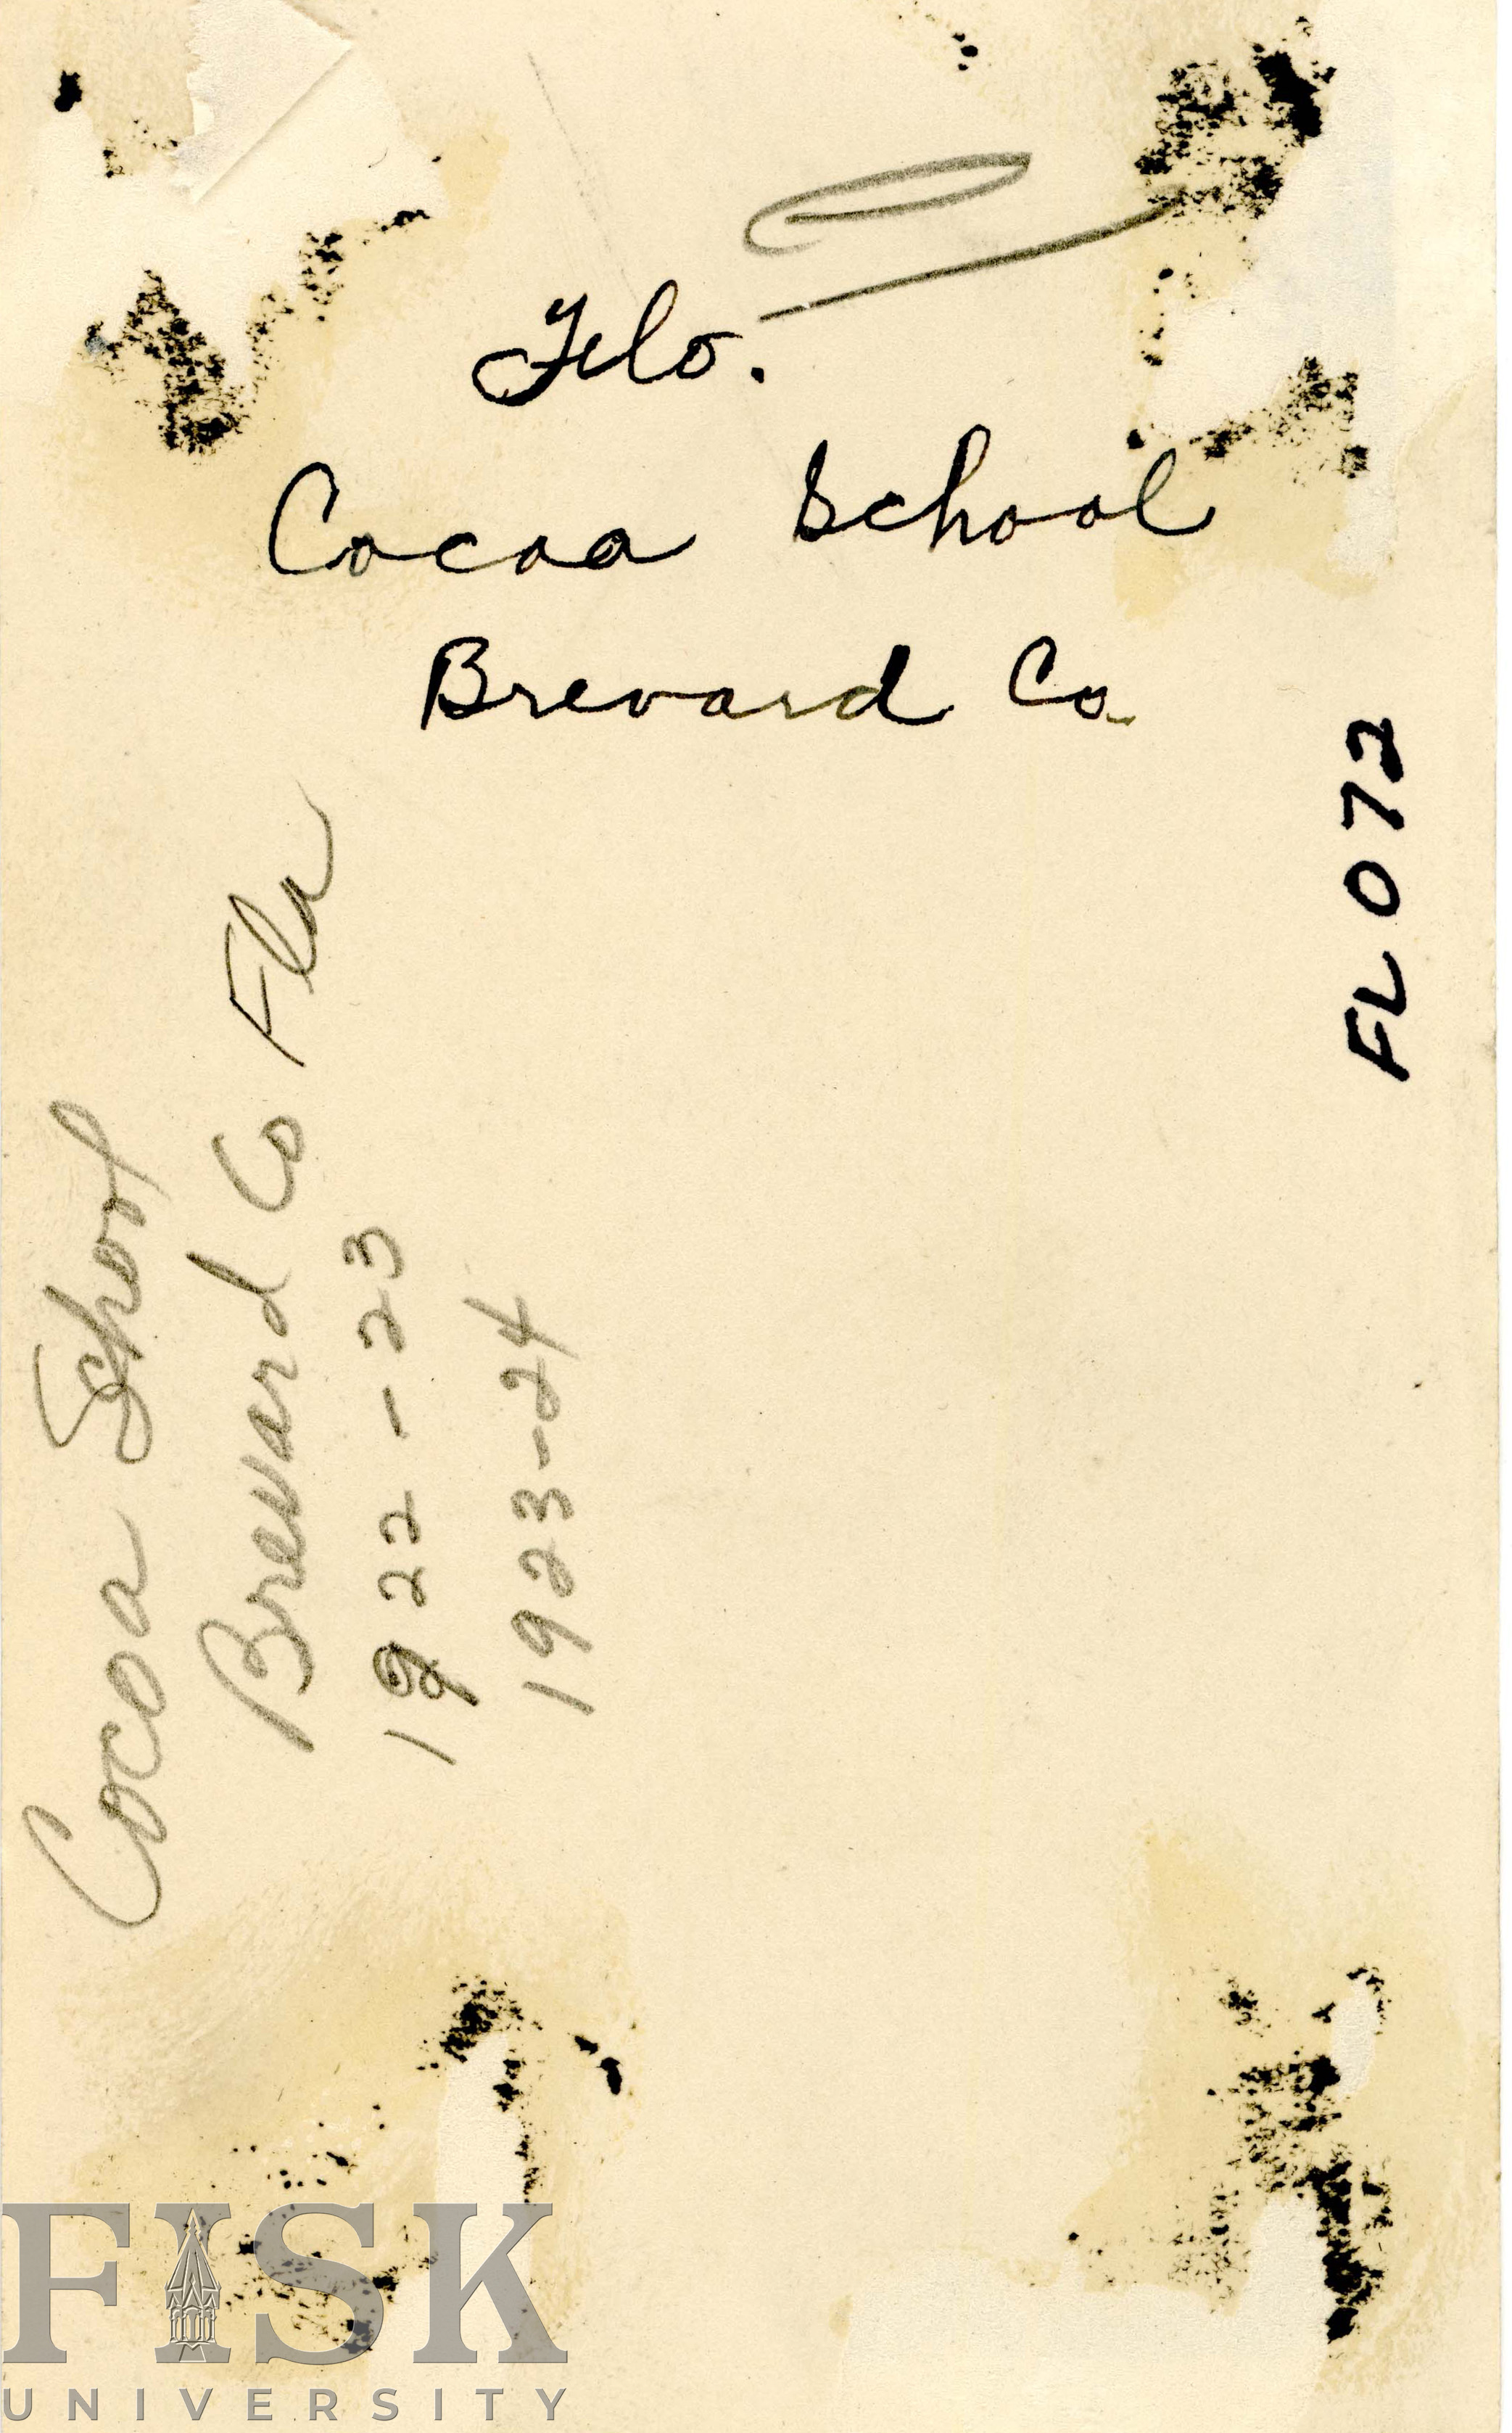 Flo.
Cocoa School
Brevard Co.
FL 072
Cocoa School
Brevard Co Fla
1922-23
1923-24
FISK
UNIVERSITY